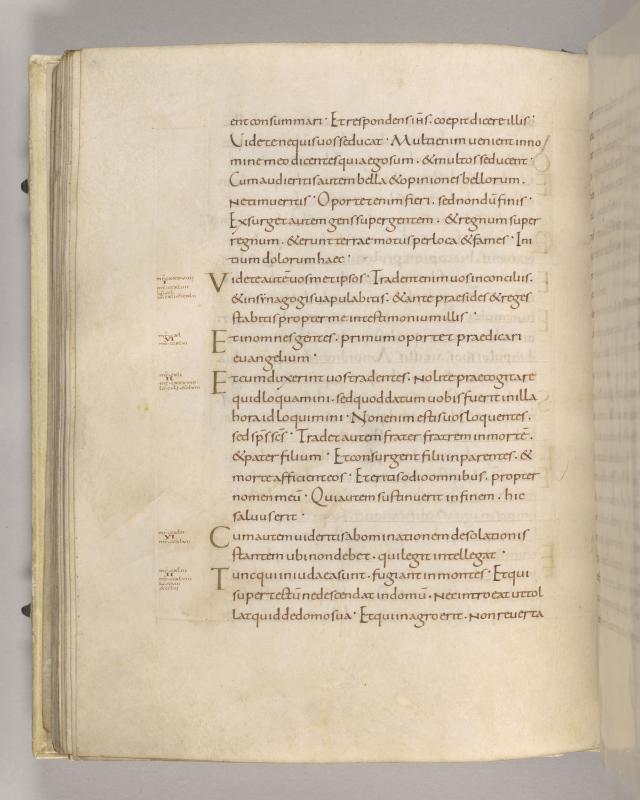 ent consummari · Et respondens ih̅s. coepit dicere illis ·
Videte ne quis vos seducat · Multi enim venient in no
mine meo dicentes quia ego sum · & multos seducent ·
Cum audieritis autem bella & opiniones bellorum .
ne timueritis · Oportet enim fieri . sed nondū finis ·
Exsurget autem gens super gentem . & regnum super
regnum . & erunt terrae motus per loca & fames · Ini
tium dolorum haec ·
Videte autē vosmetipsos · Tradent enim vos in conciliis .
& in synagogis vapulabitis . & ante praesides & reges
stabitis propter me in testimonium illis ·
Et in omnes gentes . primum oportet praedicari
evangelium ·
Et cum duxerint vos tradentes . nolite praecogitare
quid loquamini . sed quod datum vobis fuerit in illa
hora id loquimini · Non enim estis vos loquentes .
sed sp̅s sc̅s · Tradet autem frater fratrem in mortē .
& pater filium · Et consurgent filii in parentes . &
morte afficient eos · Et eritis odio omnibus . propter
nomen meū · Qui autem sustinuerit in finem . hic
salvus erit ·
Cum autem videritis abominationem desolationis
stantem ubi non debet . qui legit intellegat ·
Tunc qui in iudaea sunt . fugiant in montes · Et qui
super tectū ne descendat in domū . nec introeat ut tol
lat quid de domo sua · Et qui in agro erit . non reverta